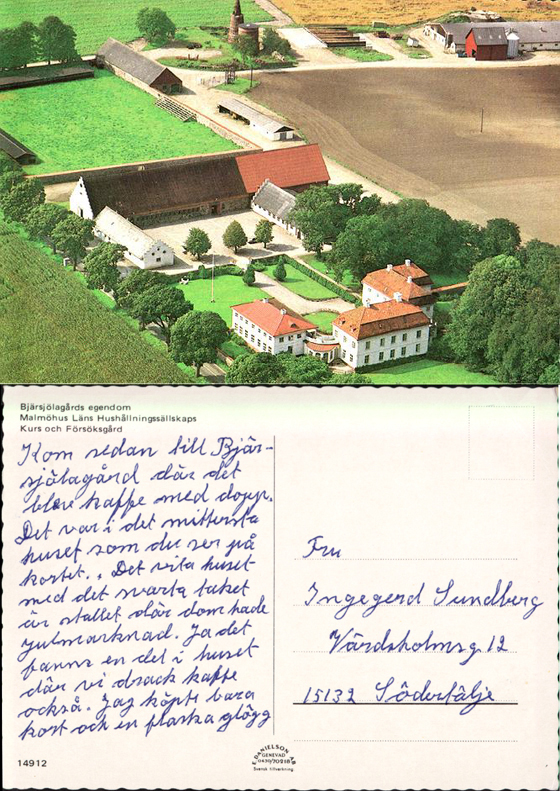 Bjärsjölagårds egendom
Malmöhus Läns Hushållningssällskaps
Kurs och Försöksgård
Kom sedan till Bjär-
sjölagård där det
blev kaffe med dopp.
Det var i det mittersta
huset som du ser på
kortet. Det vita huset
med det svarta taket
är stallet där dom hade
julmarknad. Ja det
fanns en del i huset
där vi drack kaffe
också. Jag köpte bara
kort och en flaska glögg
Fru
Ingegerd Sundberg
Värdsholmsg. 12
15132 Södertälje
DANIELSON
GENEVAD
0430/70218
Svensk tillverkning
14912